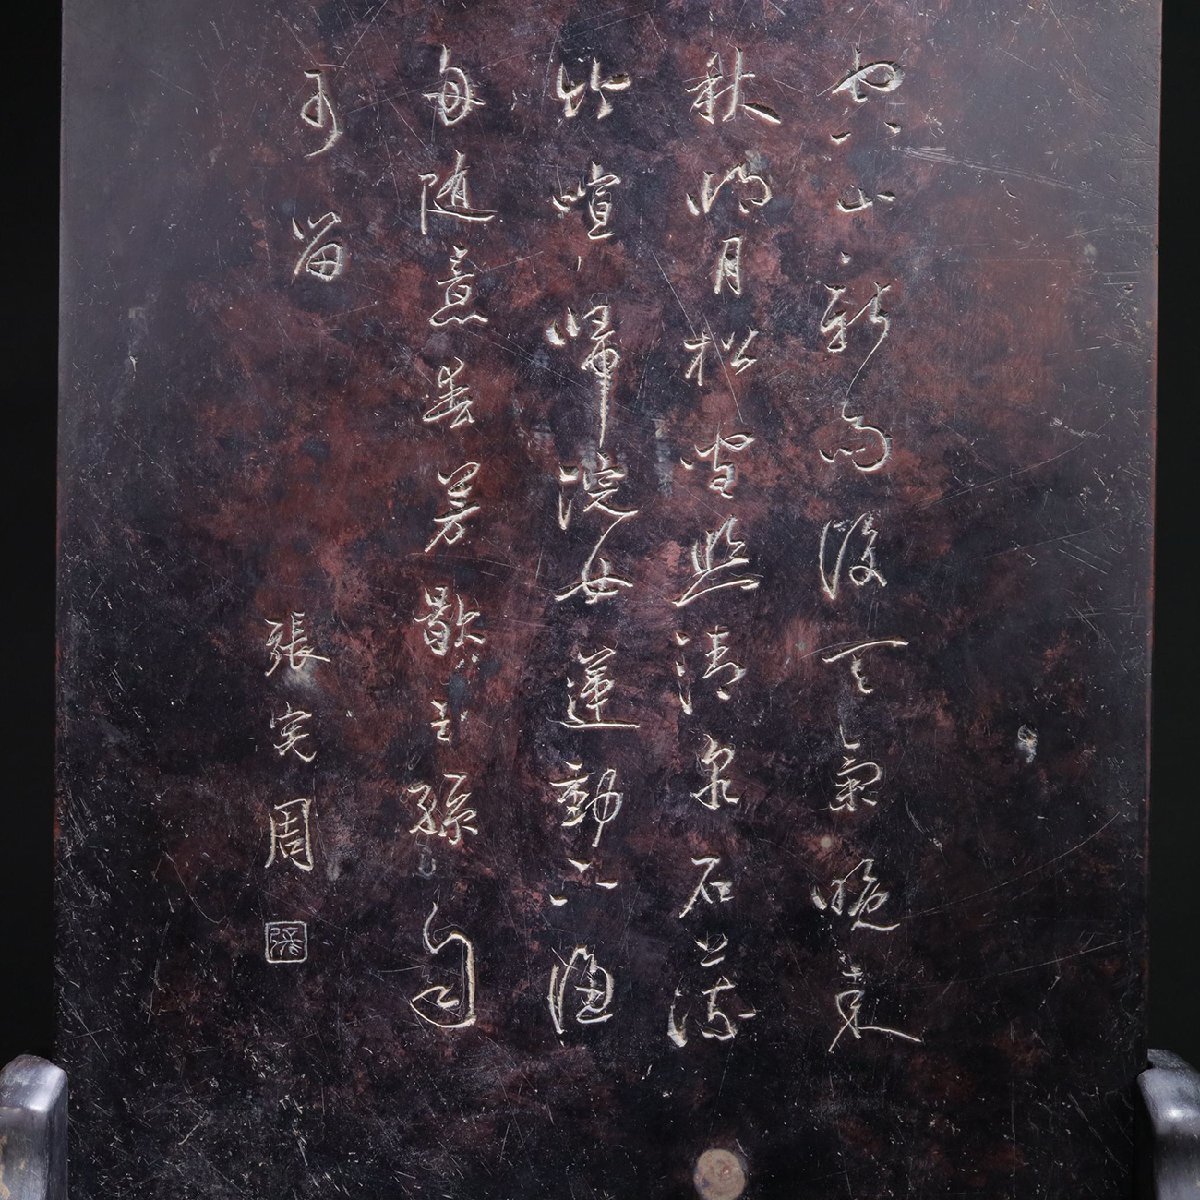 空山新雨後天氣晚來
秋明月松間照清泉石上流
竹喧歸浣女蓮動下漁
舟随意春芳歇王孫自
可留
張周
張